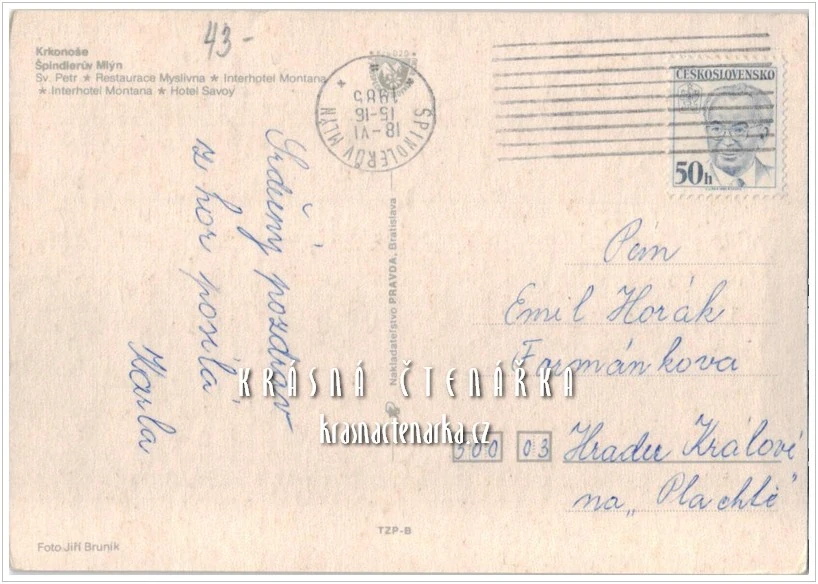 43-
Krkonoše
Špindlerův Mlýn
Sv. Petr ★ Restaurace Myslivna ★ Interhotel Montana
★ Interhotel Montana ★ Hotel Savoy
ŠPINDLERŮV MLÝN
18.-VI
15-16
1985
ČESKOSLOVENSKO
50h
Srdečný pozdrav
z hor posílá
Karla
Nakladatelstvo PRAVDA, Bratislava
Pan
Emil Horák
Formánkova
500 03 Hradec Králové
na „Plachtě"
KRÁSNÁ ČTENÁŘKA
krasnactenarka.cz
TZP-B
Foto Jiří Bruník